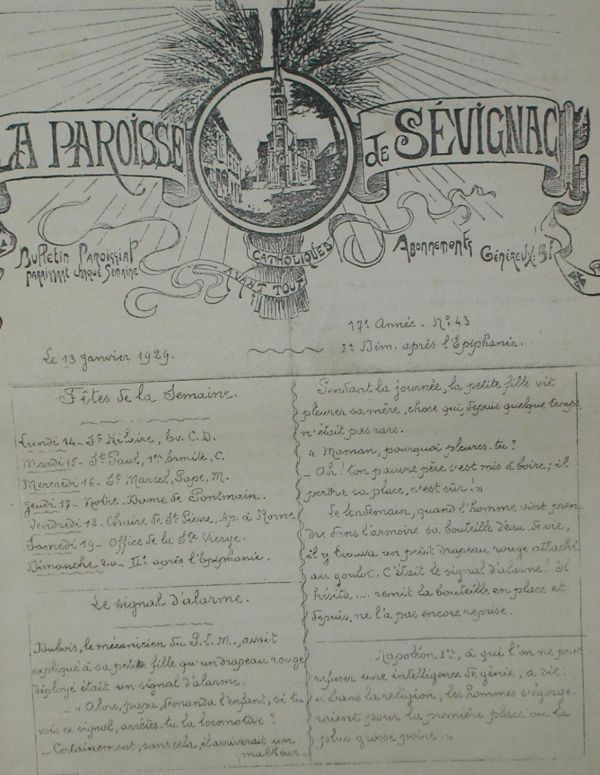 LA PAROISSE DE SÉVIGNAC
Bulletin Paroissial
paraissant chaque Semaine
CATHOLIQUES
AVANT TOUT
Abonnements Généreux: 5f
Le 13 Janvier 1929.
17e Année. No 43
1er Dim. après l'Epiphanie.
Fêtes de la Semaine.
Lundi 14 - St Hilaire, Ev. C. D.
Mardi 15 - St Paul, 1er Ermite, C.
Mercredi 16 - St Marcel, Pape, M.
Jeudi 17 - Notre-Dame de Pontmain.
Vendredi 18 - Chaire de St Pierre, ap. à Rome
Samedi 19 - Office de la Ste Vierge.
Dimanche 20 - IIe après l'Epiphanie.
Le signal d'alarme.
Dubois, le mécanicien du P.L.M., avait
expliqué à sa petite fille qu'un drapeau rouge
déployé était un signal d'alarme.
"Alors, papa, demanda l'enfant, si tu
vois ce signal, arrêtes-tu la locomotive?
- Certainement, sans cela, il arriverait un
malheur.
Pendant la journée, la petite fille vit
pleurer sa mère, chose qui, depuis quelque temps
n'était pas rare.
"Maman, pourquoi pleures-tu?
- Ah! ton pauvre père s'est mis à boire; il
perdra sa place, c'est sûr!"
Le lendemain, quand l'homme vint pren-
dre dans l'armoire sa bouteille d'eau-de-vie,
il y trouva un petit drapeau rouge attaché
au goulot. C'était le signal d'alarme! Il
hésita.... remit la bouteille en place et
depuis, ne l'a pas encore reprise.
Napoléon 1er, à qui l'on ne peut
refuser une intelligence de génie, a dit:
"Sans la religion, les hommes s'égorge-
raient pour la première place ou la
plus grosse poire."